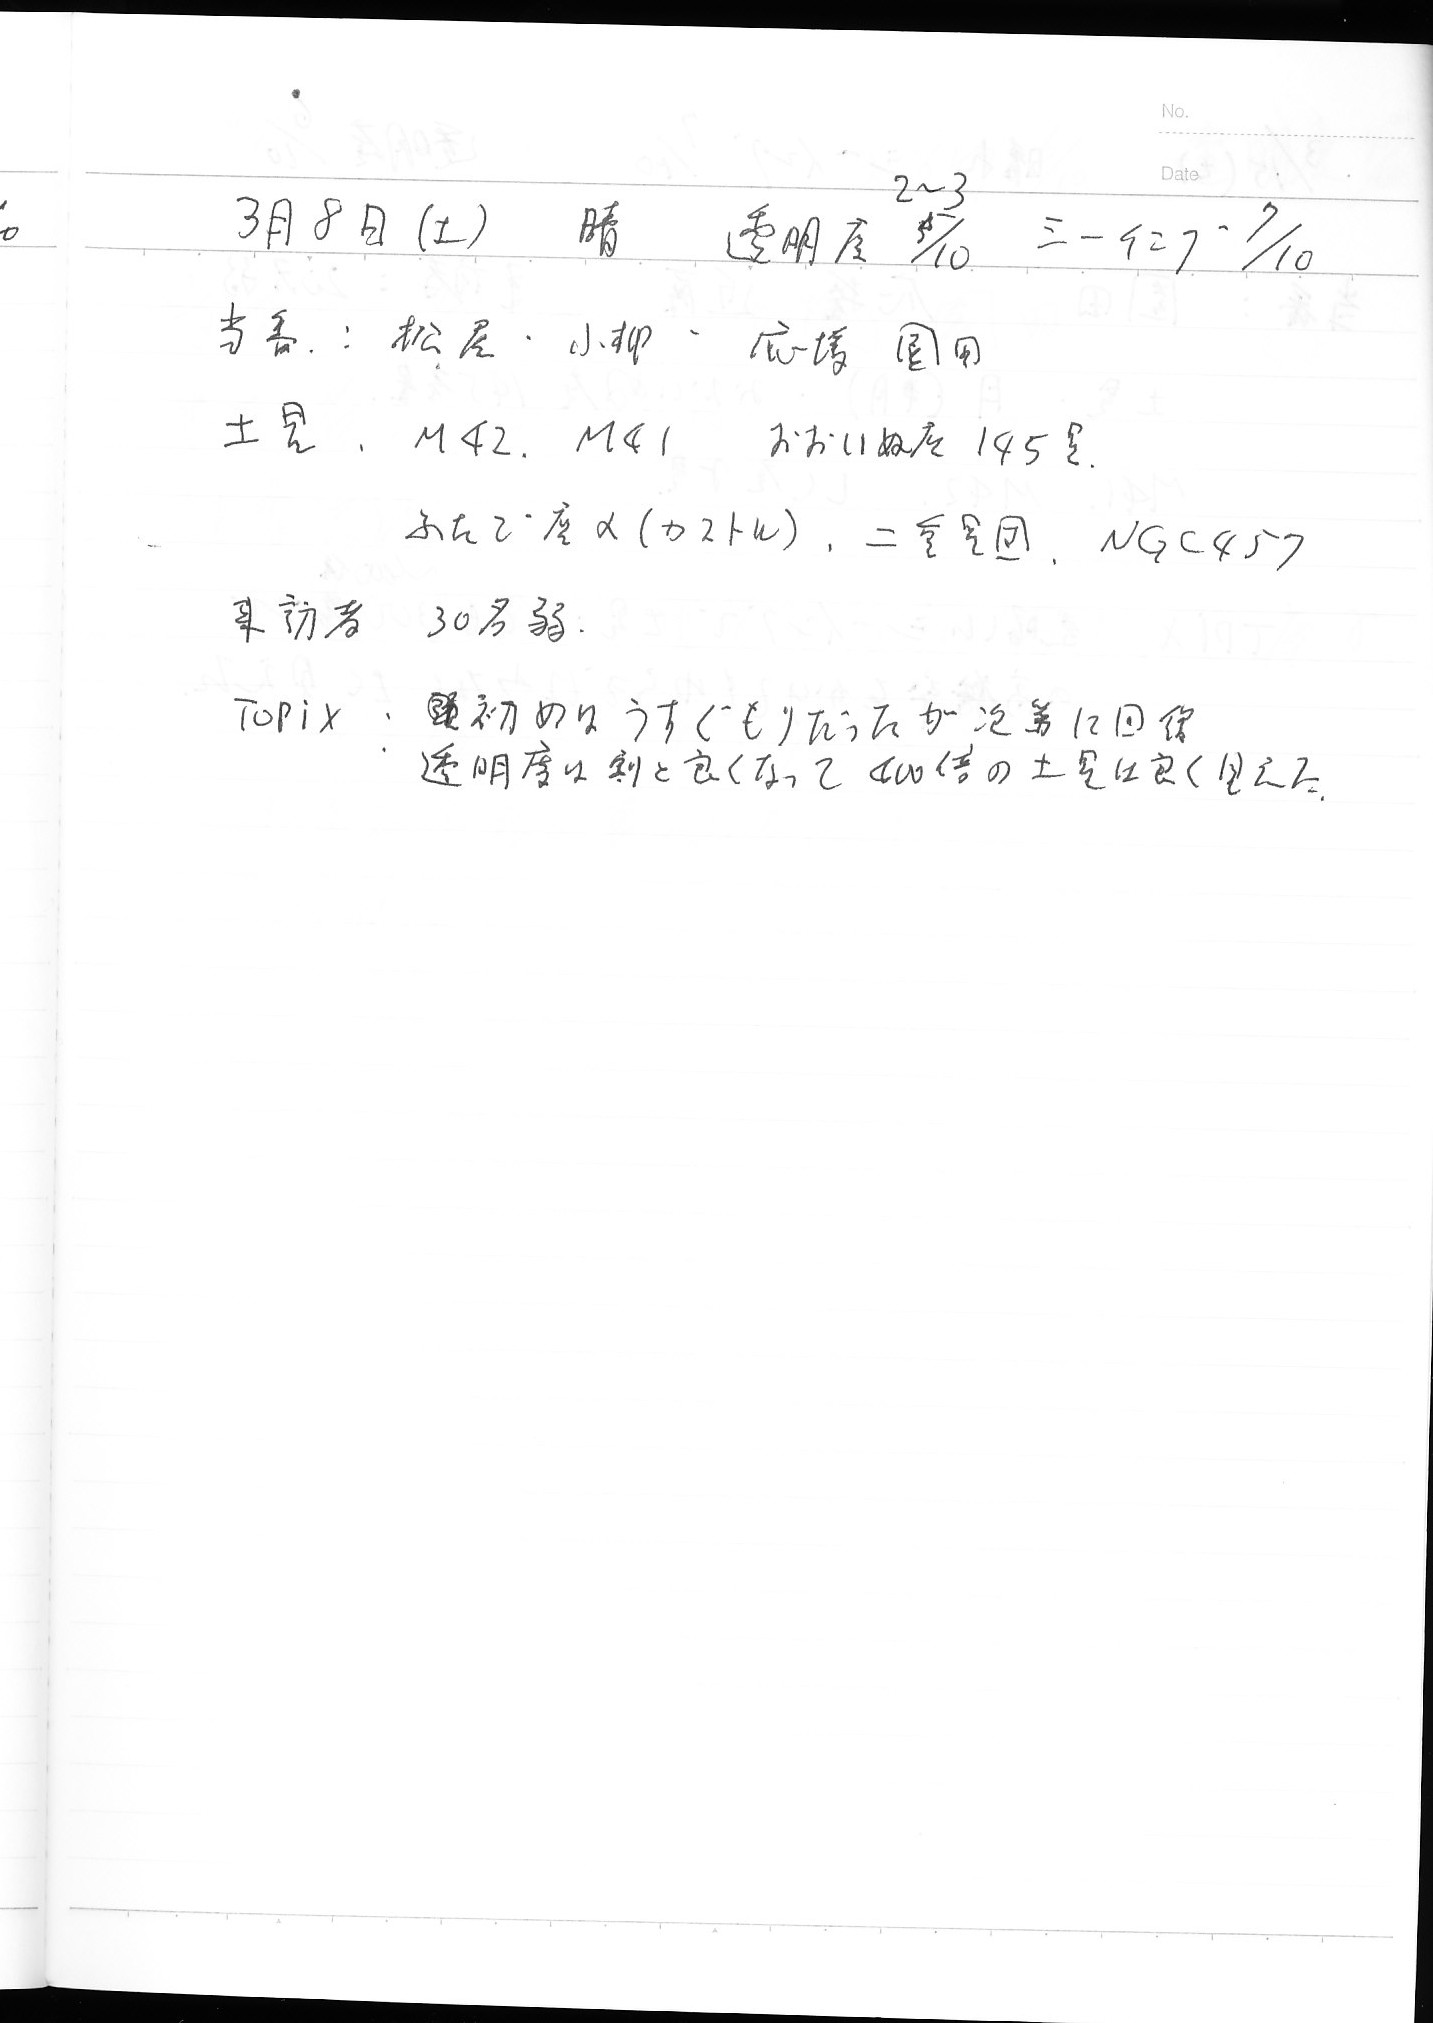 No.
Date
2〜3
3月8日(土) 晴 透明度 5/10 シーイング 7/10
当番: 松尾・小柳・応援 園田
土星、M42. M41 おおいぬ座 145星.
ふたご座α(カストル)、二重星団、NGC457
来訪者 30名弱.
Topix: 初めはうすぐもりだったが次第に回復
透明度は割と良くなって 400倍の土星は良く見えた.